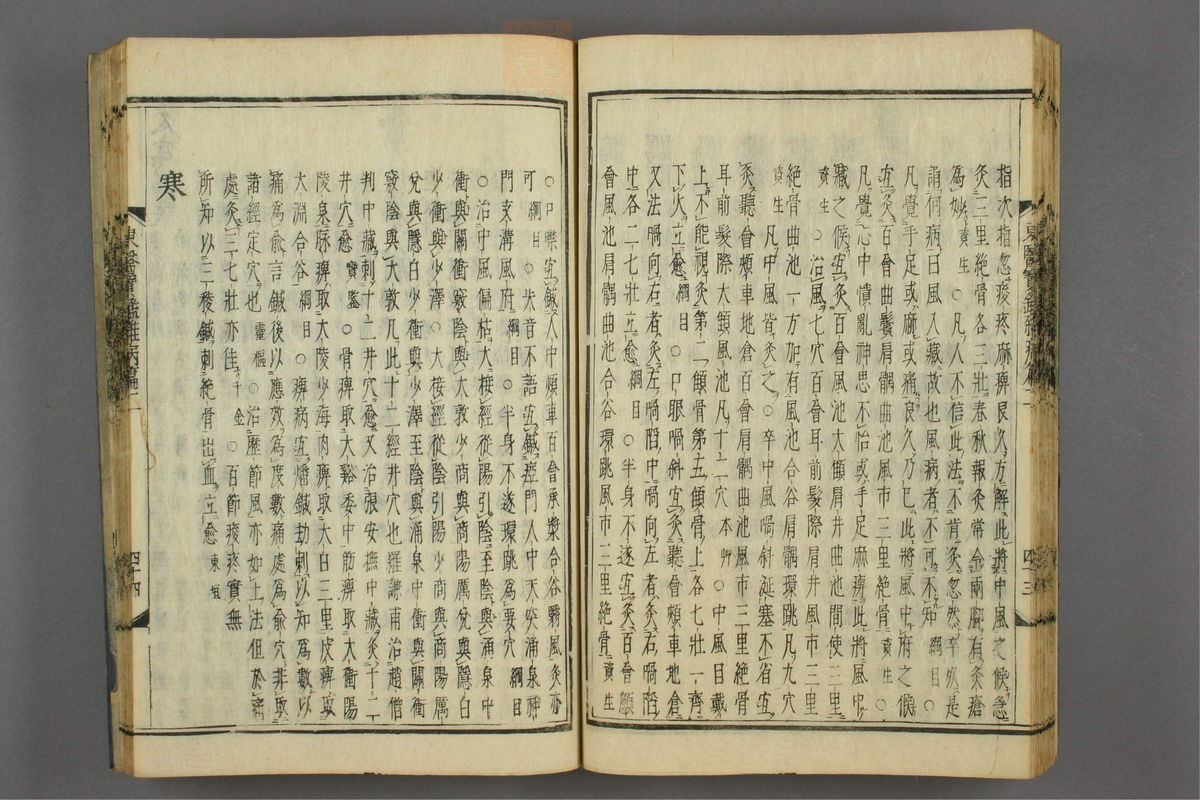 指次指忽痠疼麻痺良久方解此將中風之候急
灸三里絶骨各三壯春秋報灸常令兩脚有灸瘡
爲妙資生○凡人不信此法不肯灸忽然卒死是
謂何病曰風入藏故也風病者不可不知綱目○
凡覺手足或麻或痛良久乃已此將風中府之候
宜灸百會曲鬢肩髃曲池風市三里絶骨資生○
凡覺心中憒亂神思不怡或手足麻痺此將風中
藏之候宜灸百會風池大顀肩井曲池間使三里
資生○治風七穴百會耳前髮際肩井風市三里
絶骨曲池一方加有風池合谷肩髃環跳凡九穴
資生凡中風皆灸之○卒中風喎斜涎塞不省宜
灸聽會頰車地倉百會肩髃曲池風市三里絶骨
耳前髮際大顀風池凡十二穴本艸○中風目戴
上不能視灸第二顀骨第五顀骨上各七壯一齊
下火立愈綱目○口眼喎斜宜灸聽會頰車地倉
又法喎向右者灸左喎陷中喎向左者灸右喎陷
中各二七壯立愈綱目○半身不遂宜灸百會顖
會風池肩髃曲池合谷環跳風市三里絶骨資生
四十三
○口噤宜鍼人中頰車百會承漿合谷翳風灸亦
可綱目○失音不語宜鍼瘂門人中天突涌泉神
門支溝風府綱目○半身不遂環跳爲要穴綱目
○治中風偏枯大接經從陽引陰至陰與涌泉中
衝與關衝竅陰與大敦少商與商陽厲兌與隱白
少衝與少澤○大接經從陰引陽少商與商陽厲
兌與隱白少衝與少澤至陰與涌泉中衝與關衝
竅陰與大敦凡此十二經井穴也羅謙甫治趙僧
判中藏刺十二井穴愈又治張安撫中藏灸十二
井穴愈寶鑑○骨痺取太谿委中筋痺取太衝陽
陵泉脉痺取大陵少海肉痺取太白三里皮痺取
太淵合谷綱目○痺病宜燔鍼劫刺以知爲數以
痛爲兪言鍼後以應效爲度數痛處爲兪穴非取
諸經定穴也靈樞○治歷節風亦如上法但於痛
處灸三七壯亦佳千金○百節痠疼實無
所知以三稜鍼刺絶骨出血立愈東垣
寒
東醫寶鑑雜病篇二
四十四